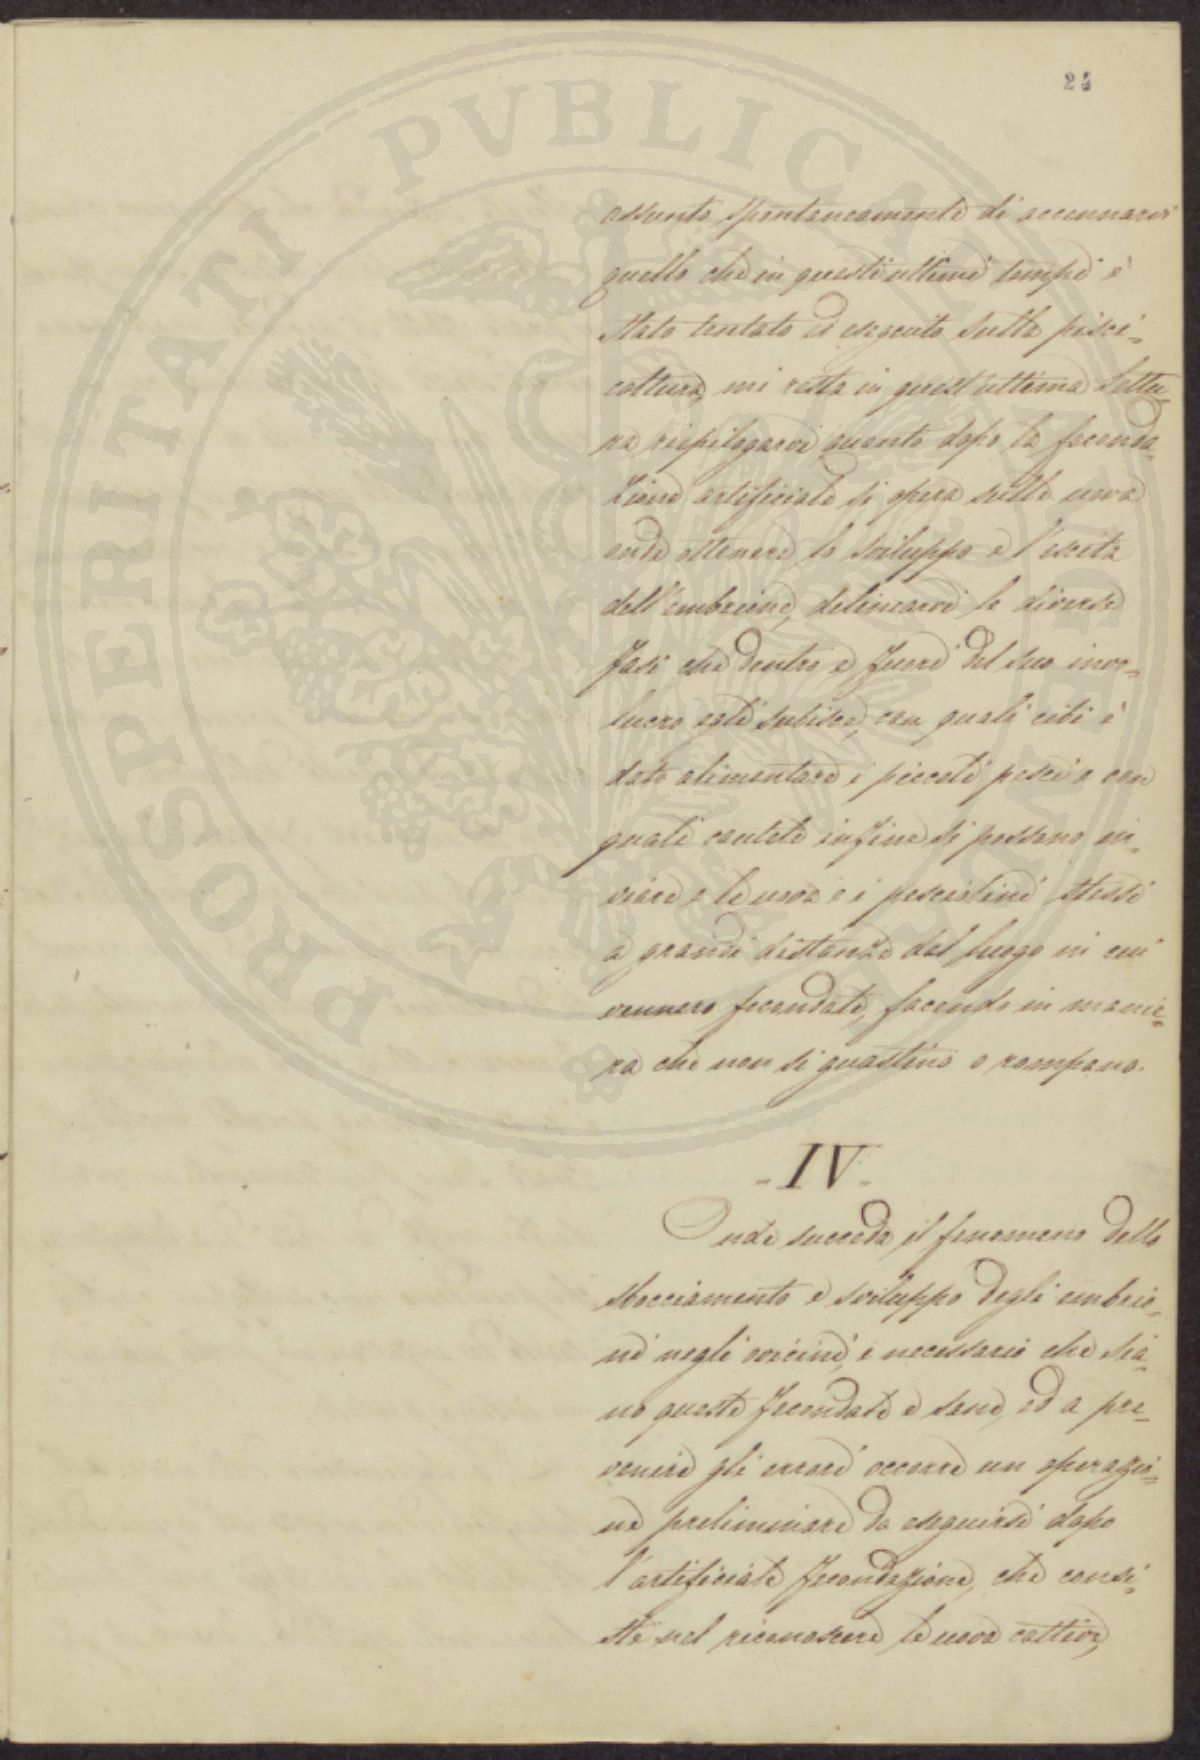 24
assunto spontaneamente di accennarvi
quello che in questi ultimi tempi è
stato tentato ed eseguito sulla pisci=
coltura, mi resta in quest'ultima lettu=
ra riepilogarvi quanto dopo la feconda=
zione artificiale si opera sulle uova
onde ottenere lo sviluppo e l'escita
dell'embrione, delinearvi le diverse
fasi che dentro e fuori del suo invo=
lucro egli subisce, con quali cibi è
dato alimentare i piccoli pesci e con
quali cautele infine si possono in=
viare e le uova e i pesciolini stessi
a grandi distanze dal luogo in cui
vennero fecondate, facendo in manie=
ra che non si guastino o rompano.
- IV -
Onde succeda il fenomeno dello
sbocciamento e sviluppo degli embrio=
ni negli ovicini, è necessario che sia=
no queste fecondate e sane, ed a pre=
venire gli errori occorre un operazio=
ne preliminare da eseguirsi dopo
l'artificiale fecondazione, che consi=
ste nel riconoscere le uova cattive,
PROSPERITATI PVBLICAE